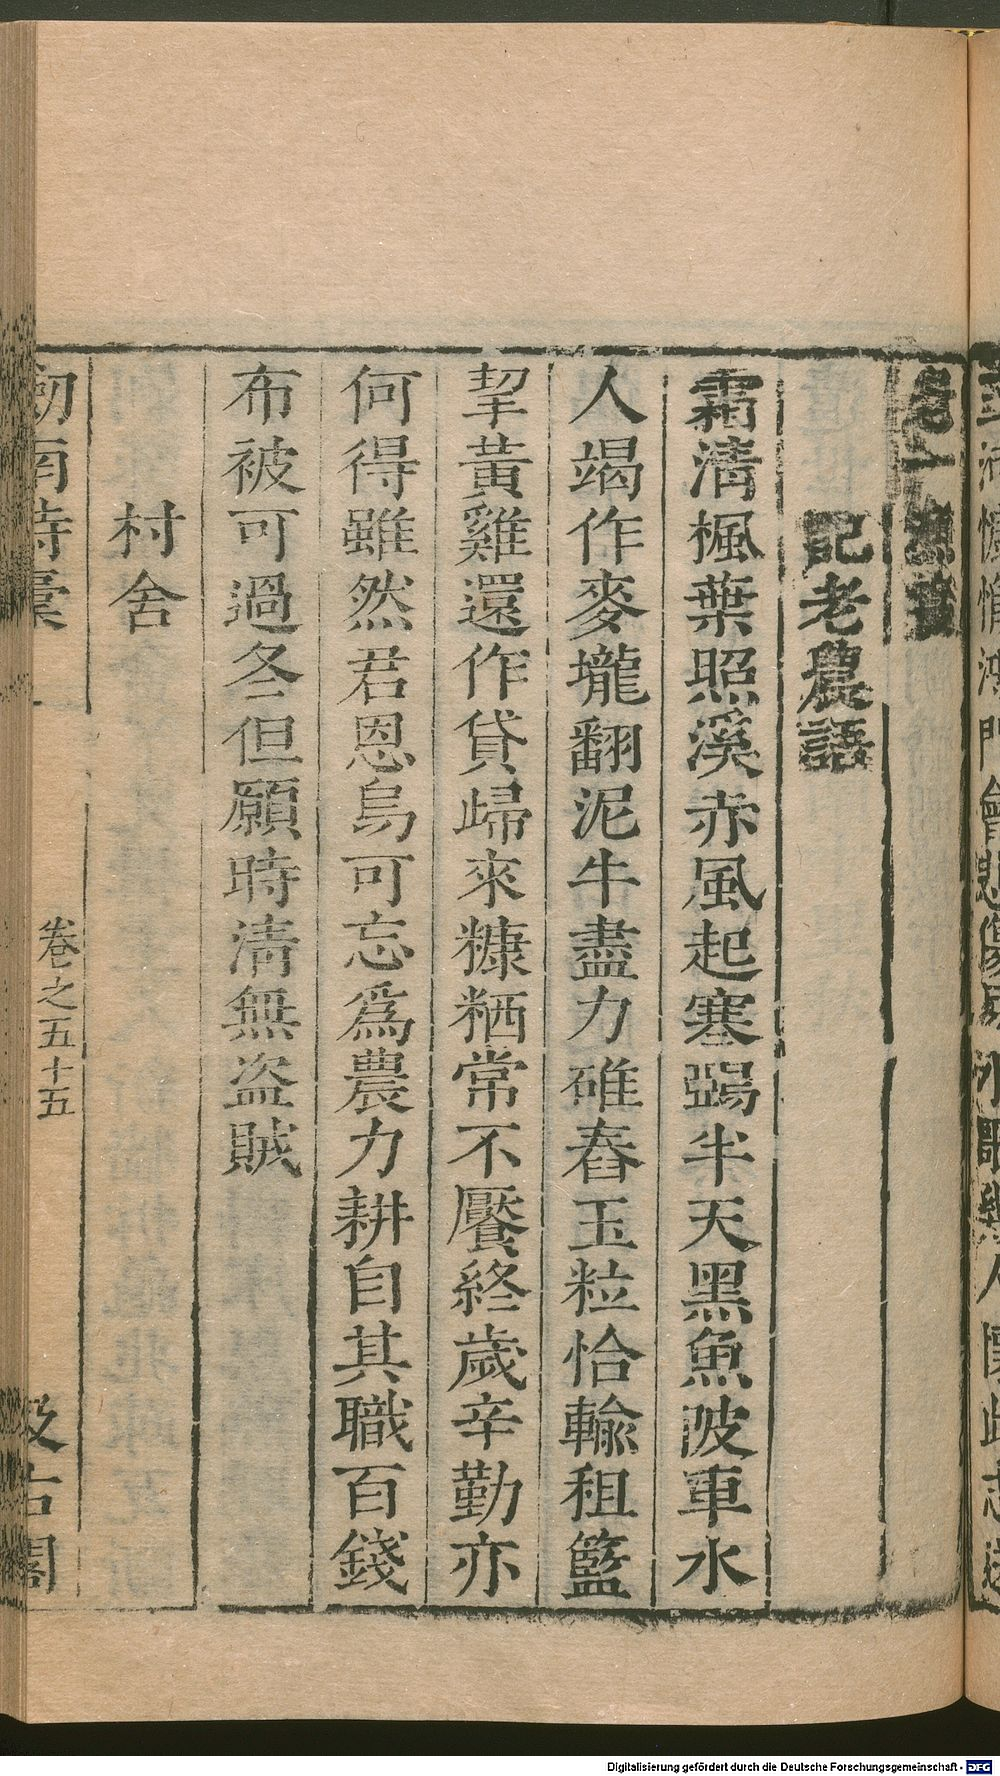 老一漁簑
記老農語
霜淸楓葉照溪赤風起寒鵶半天黑魚陂車水
人竭作麥壠翻泥牛盡力碓舂玉粒恰輸租籃
挈黃雞還作貸歸來糠粞常不饜終歲辛勤亦
何得雖然君恩烏可忘爲農力耕自其職百錢
布被可過冬但願時淸無盜賊
村舍
劒南詩稾
卷之五十五
汲古閣
Digitalisierung gefördert durch die Deutsche Forschungsgemeinschaft - DFG